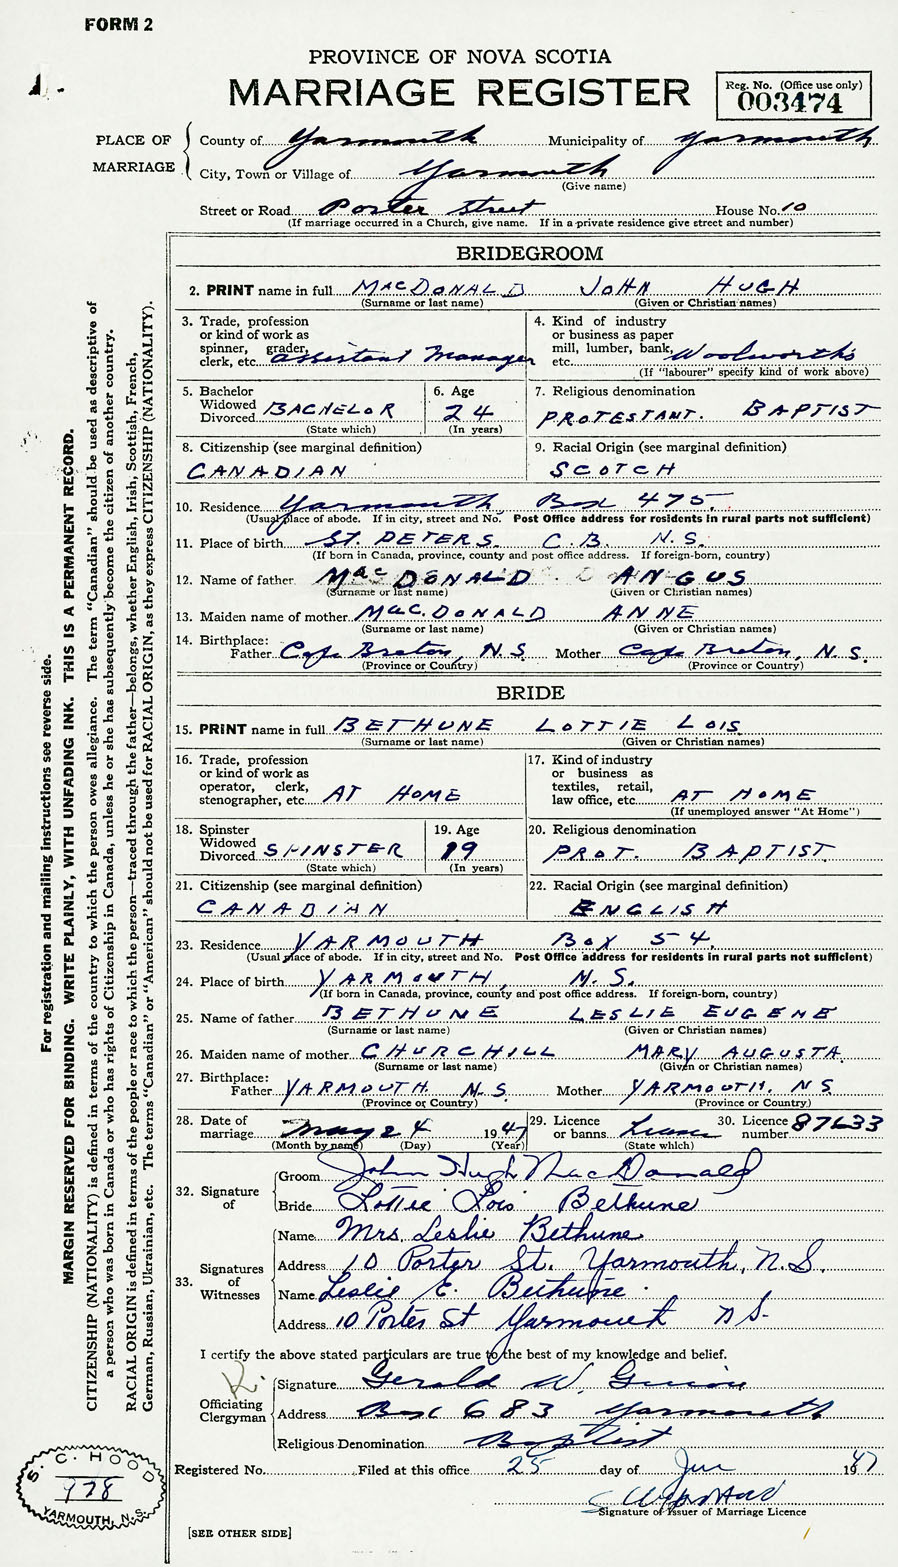 FORM 2
PROVINCE OF NOVA SCOTIA
MARRIAGE REGISTER
Reg. No. (Office use only)
003474
PLACE OF MARRIAGE
County of Yarmouth Municipality of Yarmouth
City, Town or Village of Yarmouth
(Give name)
Street or Road Porter Street House No. 10
(If marriage occurred in a Church, give name. If in a private residence give street and number)
BRIDEGROOM
2. PRINT name in full MacDONALD JOHN HUGH
(Surname or last name) (Given or Christian names)
3. Trade, profession
or kind of work as
spinner, grader,
clerk, etc. assistant Manager
4. Kind of industry
or business as paper
mill, lumber, bank,
etc. Woolworth's
(If "labourer" specify kind of work above)
5. Bachelor
Widowed
Divorced BACHELOR
(State which)
6. Age
24
(In years)
7. Religious denomination
PROTESTANT. BAPTIST
8. Citizenship (see marginal definition)
CANADIAN
9. Racial Origin (see marginal definition)
SCOTCH
10. Residence Yarmouth, Box 475.
(Usual place of abode. If in city, street and No. Post Office address for residents in rural parts not sufficient)
11. Place of birth ST. PETERS. C.B. N.S.
(If born in Canada, province, county and post office address. If foreign-born, country)
12. Name of father MacDONALD ANGUS
(Surname or last name) (Given or Christian names)
13. Maiden name of mother MacDONALD ANNE
(Surname or last name) (Given or Christian names)
14. Birthplace:
Father Cape Breton, N.S. Mother Cape Breton, N.S.
(Province or Country) (Province or Country)
BRIDE
15. PRINT name in full BETHUNE LOTTIE LOIS
(Surname or last name) (Given or Christian names)
16. Trade, profession
or kind of work as
operator, clerk,
stenographer, etc. AT HOME
17. Kind of industry
or business as
textiles, retail,
law office, etc. AT HOME
(If unemployed answer "At Home")
18. Spinster
Widowed
Divorced SPINSTER
(State which)
19. Age
19
(In years)
20. Religious denomination
PROT. BAPTIST.
21. Citizenship (see marginal definition)
CANADIAN
22. Racial Origin (see marginal definition)
ENGLISH
23. Residence YARMOUTH BOX 54.
(Usual place of abode. If in city, street and No. Post Office address for residents in rural parts not sufficient)
24. Place of birth YARMOUTH, N.S.
(If born in Canada, province, county and post office address. If foreign-born, country)
25. Name of father BETHUNE LESLIE EUGENE
(Surname or last name) (Given or Christian names)
26. Maiden name of mother CHURCHILL MARY AUGUSTA.
(Surname or last name) (Given or Christian names)
27. Birthplace:
Father YARMOUTH. N.S. Mother YARMOUTH. N S.
(Province or Country) (Province or Country)
28. Date of
marriage May 24 1947
(Month by name) (Day) (Year)
29. Licence
or banns
(State which)
30. Licence
number 87633
32. Signature of
Groom John Hugh MacDonald
Bride Lottie Lois Bethune
33. Signatures of Witnesses
Name Mrs. Leslie Bethune
Address 10 Porter St. Yarmouth, N.S.
Name Leslie E. Bethune.
Address 10 Porter St Yarmouth N S.
I certify the above stated particulars are true to the best of my knowledge and belief.
Officiating Clergyman
Signature Gerald W.
Address Box 683 Yarmouth
Religious Denomination Baptist
Registered No. Filed at this office 25 day of 1947
Signature of Issuer of Marriage Licence
[SEE OTHER SIDE]
S. C. HOOD
978
YARMOUTH, N.S.
For registration and mailing instructions see reverse side.
MARGIN RESERVED FOR BINDING. WRITE PLAINLY, WITH UNFADING INK. THIS IS A PERMANENT RECORD.
CITIZENSHIP (NATIONALITY) is defined in terms of the country to which the person owes allegiance. The term "Canadian" should be used as descriptive of
a person who was born in Canada or who has rights of Citizenship in Canada, unless he or she has subsequently become the citizen of another country.
RACIAL ORIGIN is defined in terms of the people or race to which the person—traced through the father—belongs, whether English, Irish, Scottish, French,
German, Russian, Ukrainian, etc. The terms "Canadian" or "American" should not be used for RACIAL ORIGIN, as they express CITIZENSHIP (NATIONALITY).